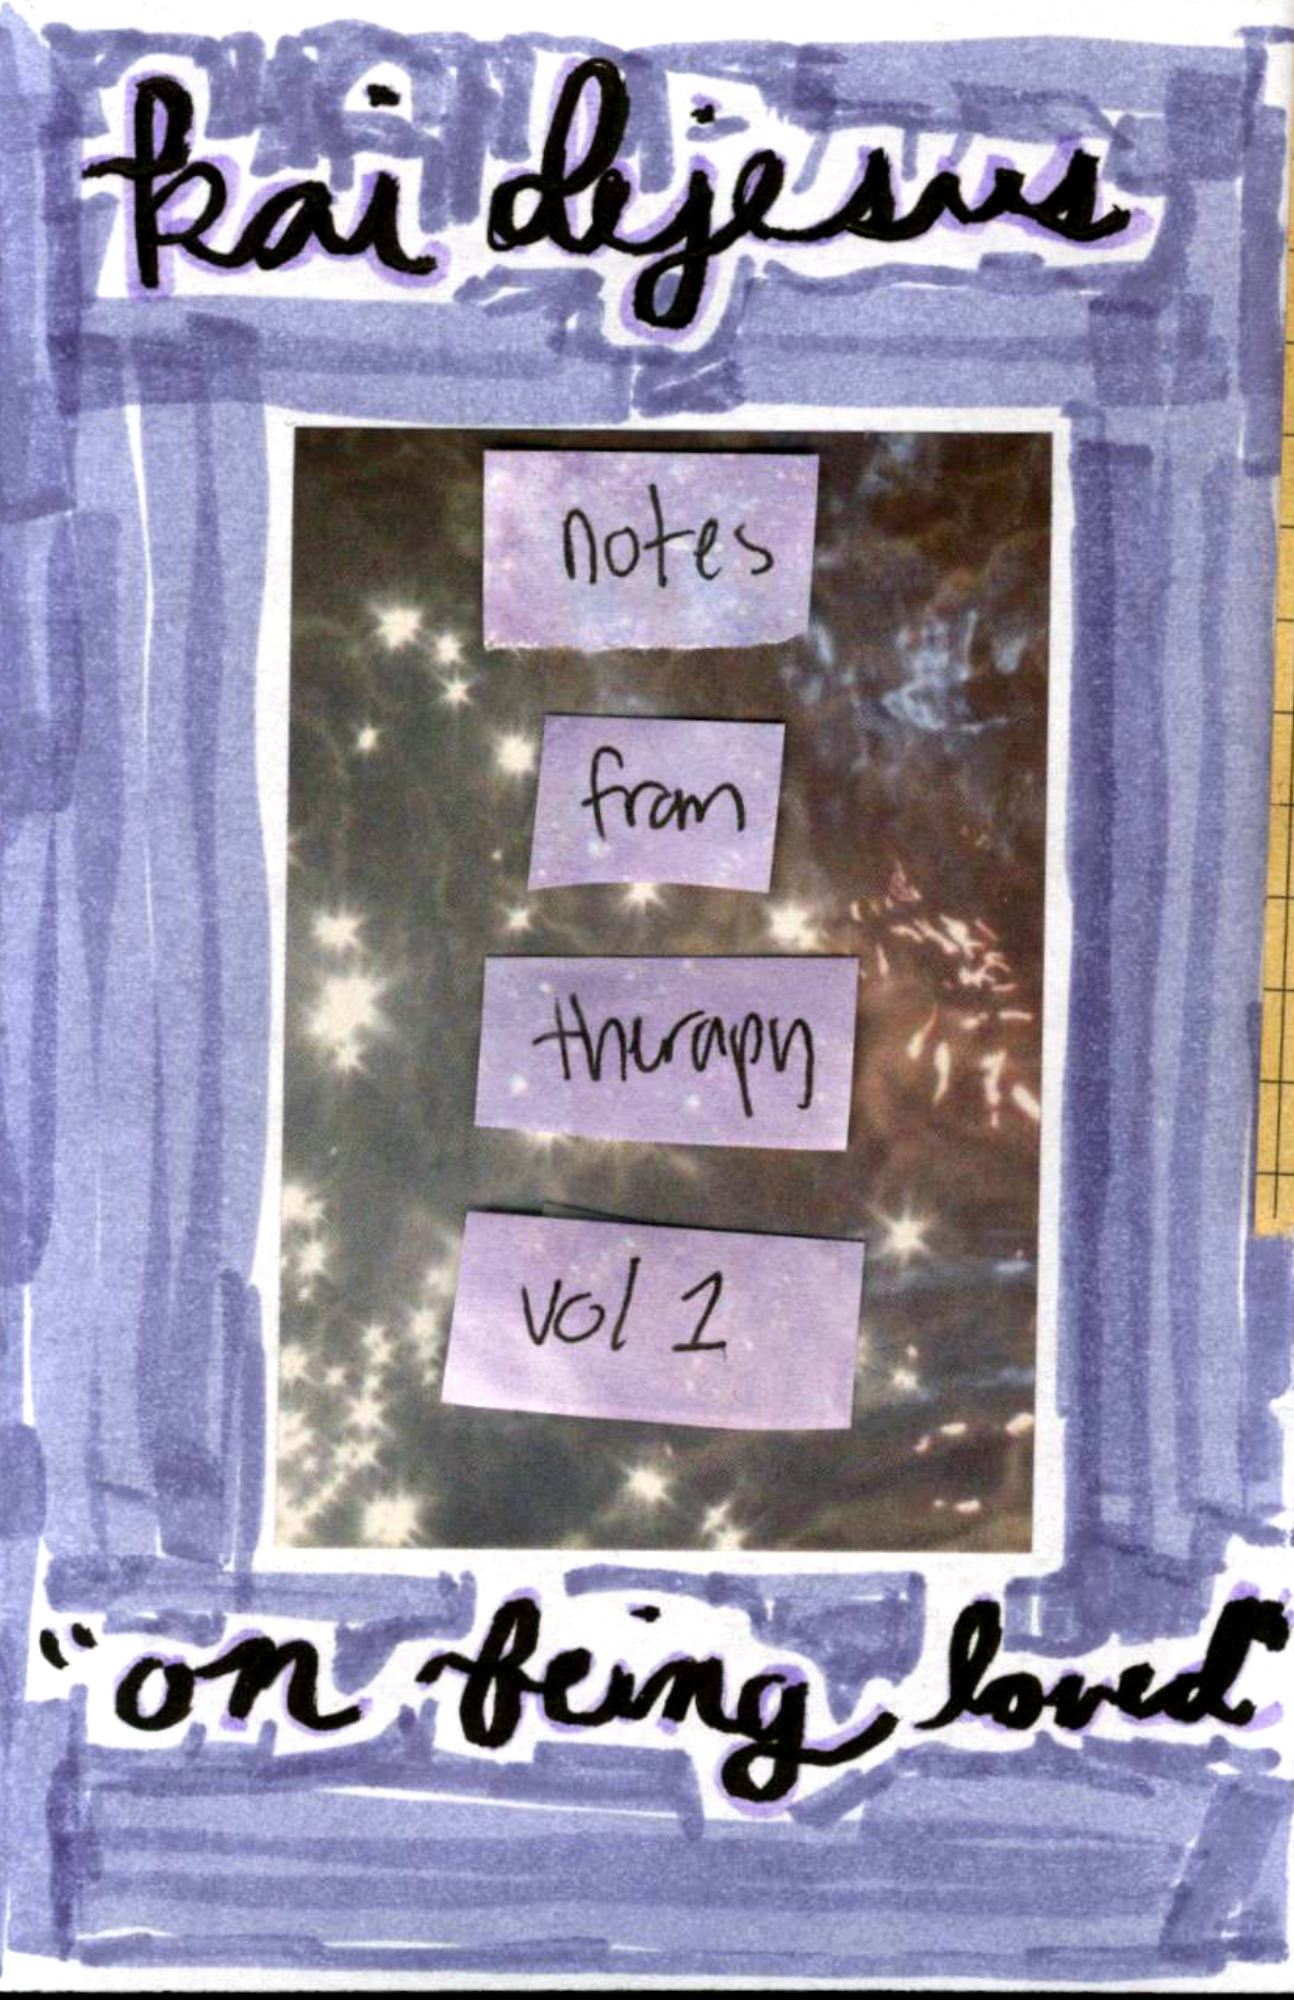 kai dejesus
notes
from
therapy
vol 1
"on being loved"